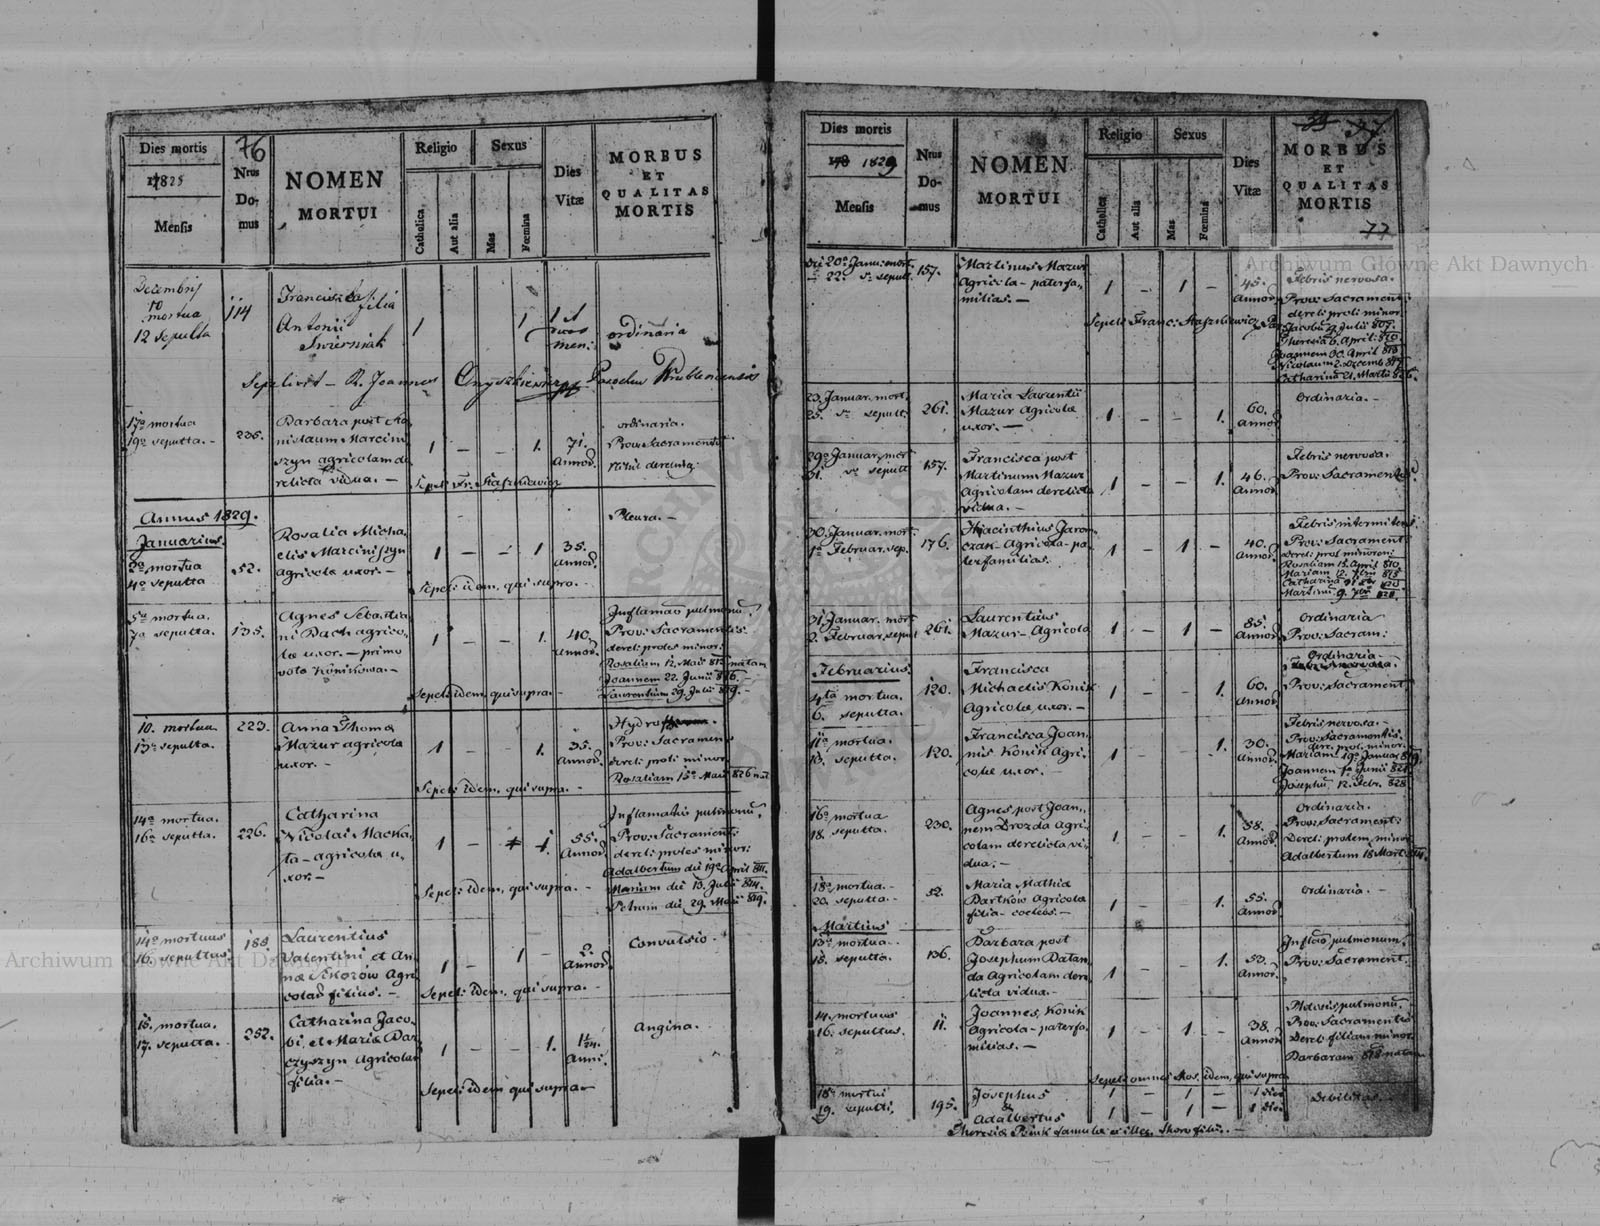 76
Dies mortis
1825
Mensis
Nrus
Do-
mus
NOMEN
MORTUI
Religio
Catholica
Aut alia
Sexus
Mas
Fœmina
Dies
Vitæ
MORBUS
ET
QUALITAS
MORTIS
Decembris
10
mortua
12 sepulta
114
Francisca
filia
Antonii
Swierniak
1
1
ordinaria
Sepelivit - R. Joannes Onyszkiewicz Parochus
17a mortua
19a sepulta. -
235.
Barbara post
nislaum Marcini
szyn agricolam de
relicta vidua. -
1 - - 1.
71.
Annor.
ordinaria.
Prov: Sacramentis
Sepel: Fr: Staszkiewicz
Annus 1829.
Januarius.
2a mortua
4a sepulta
52.
Rosalia Micha
elis Marciniszyn
Agricolæ uxor. -
1 - - 1
35.
Annor.
Pleura. -
Sepel: idem, qui supra. -
5a mortua.
7a sepulta.
135.
Agnes Sebastia
ni Bach agrico-
læ uxor. - primo
voto Konikowa. -
1 - - 1.
40.
Annor.
Inflamao pulmonu.
Prov: Sacramentis.
dereli: proles minor:
Rosaliam 12. Maii 812 natam
Joannem 22. Junii 816. -
Laurentium 29. Julii 819. -
Sepel: idem, qui supra. -
10. mortua
13a sepulta.
223.
Anna Thomæ
Mazur agricolæ
uxor. -
1 - - 1.
35.
Annor.
Prov: Sacramen
dereli: proli minor
Rosaliam 15a Maii 826 nat
Sepel: idem, qui supra. -
14a mortua.
16a sepulta.
226.
Catharina
Nicolai Macha
ta - agricolæ u-
xor. -
1 - 1.
55.
Annor.
Inflamatio pulmonu,
Prov: Sacrament:
dereli: proles minor:
Adalbertum die 19a April 811.
Mariam die 15. Julii 814.
Petrum die 29. Maii 819.
Sepel: idem, qui supra. -
14a mortuus
16. sepultus
185.
Laurentius
Valentini, et An-
næ Sikorow Agri
colar filius. -
1 - 1 -
2.
Annor.
Convulsio. -
Sepel: idem, qui supra. -
15. mortua.
17. sepulta.
252.
Catharina Jaco-
bi, et Mariæ Bar
czyszyn Agricolar
filia. -
1 - - 1.
Anni.
Angina. -
Sepel: idem qui supra -
77
Dies mortis
1829
Mensis
Nrus
Do-
mus
NOMEN
MORTUI
Religio
Catholica
Aut alia
Sexus
Mas
Fœmina
Dies
Vitæ
MORBUS
ET
QUALITAS
MORTIS
77
Die 20a Janu: mort.
22. sepult.
157.
Martinus Mazur
Agricola - paterfa-
milias. -
1 - 1 -
45.
Annor.
Febris nervosa.
Prov: Sacrament:
dereli: proli minor
Jacobu 23 Julii 807.
Theresia 6. April: 810
Joannem 30. April 813
Nicolaum 2. Decemb 817
Catharina 21. Martii 826.
Sepeli: Franc: Staszkiewicz
23. Januar. mort.
25. sepult.
261.
Maria Laurentii
Mazur Agricolæ
uxor. -
1 - - 1.
60.
Annor
Ordinaria. -
29a Januar. mor
31. sepult
157.
Francisca post
Martinum Mazur
Agricolam derelicta
vidua. -
1 - - 1.
46.
Annor
Febris nervosa.
Prov: Sacramentis
30. Januar. mor.
1a Februar. sep.
176.
Hyacinthius Jarem
czak - Agricola - pa-
terfamilias.
1 - 1 -
40.
Annor
Febris intermitens
Prov: Sacrament
dereli: prol minoren:
Rosaliam 15. April 810.
Martinu 9. 828.
31. Januar. mort
2. Februar. sepult
261.
Laurentius
Mazur - Agricola
1 - 1 -
85.
Annor
Ordinaria
Prov: Sacram:
Februarius.
4ta mortua.
6. sepulta.
120.
Francisca
Michaelis Konik
Agricolæ uxor. -
1 - - 1.
60.
Annor
Ordinaria -
Prov: Sacrament
11a mortua.
13. sepulta.
120.
Francisca Joan-
nis Konik Agri-
colæ uxor. -
1 - - 1.
30.
Annor
Febris nervosa. -
Prov: Sacramentis
dere: prol: minor:
Mariam 19a Januar 819.
Joannem 1a Junii 821
Josephu 12. Febr. 828
16a mortua
18. sepulta.
230.
Agnes post Joan-
nem Drozda Agri-
colam derelicta vi-
dua. -
1 - - 1.
58.
Annor.
Ordinaria.
Prov: Sacrament:
Dereli: prolem minor
Adalbertum 18 Mart 814.
18a mortua. -
20. sepulta. -
52.
Maria Mathiæ
Bartkow Agricolæ
filia - coelebs. -
1 - - 1.
55.
Annor
Ordinaria. -
Martius
13a mortua. -
15. sepulta.
136.
Barbara post
Josephum Batan-
da Agricolam dere-
licta vidua. -
1 - - 1.
53.
Annor
Inflao pulmonum.
Prov: Sacrament.
14. mortuus
16. sepultus.
11.
Joannes Konik
Agricola - paterfa-
milias. -
1 - 1 -
38.
Annor
Phtisis pulmonu.
Prov: Sacramentis
Dereli: filiam minor
Barbaram 818 natam
Sepel: omnes hos, idem, qui supra
18a mortui
19. sepulti,
195.
Josephus
&
Adalbertus
1 - 1 - 1 die
1 - 1 - 1 die
Debilitas. -
Theresiæ Konik famulæ ex illeg. thoro filii. -
Archiwum Główne Akt Dawnych
Archiwum Główne Akt Dawnych